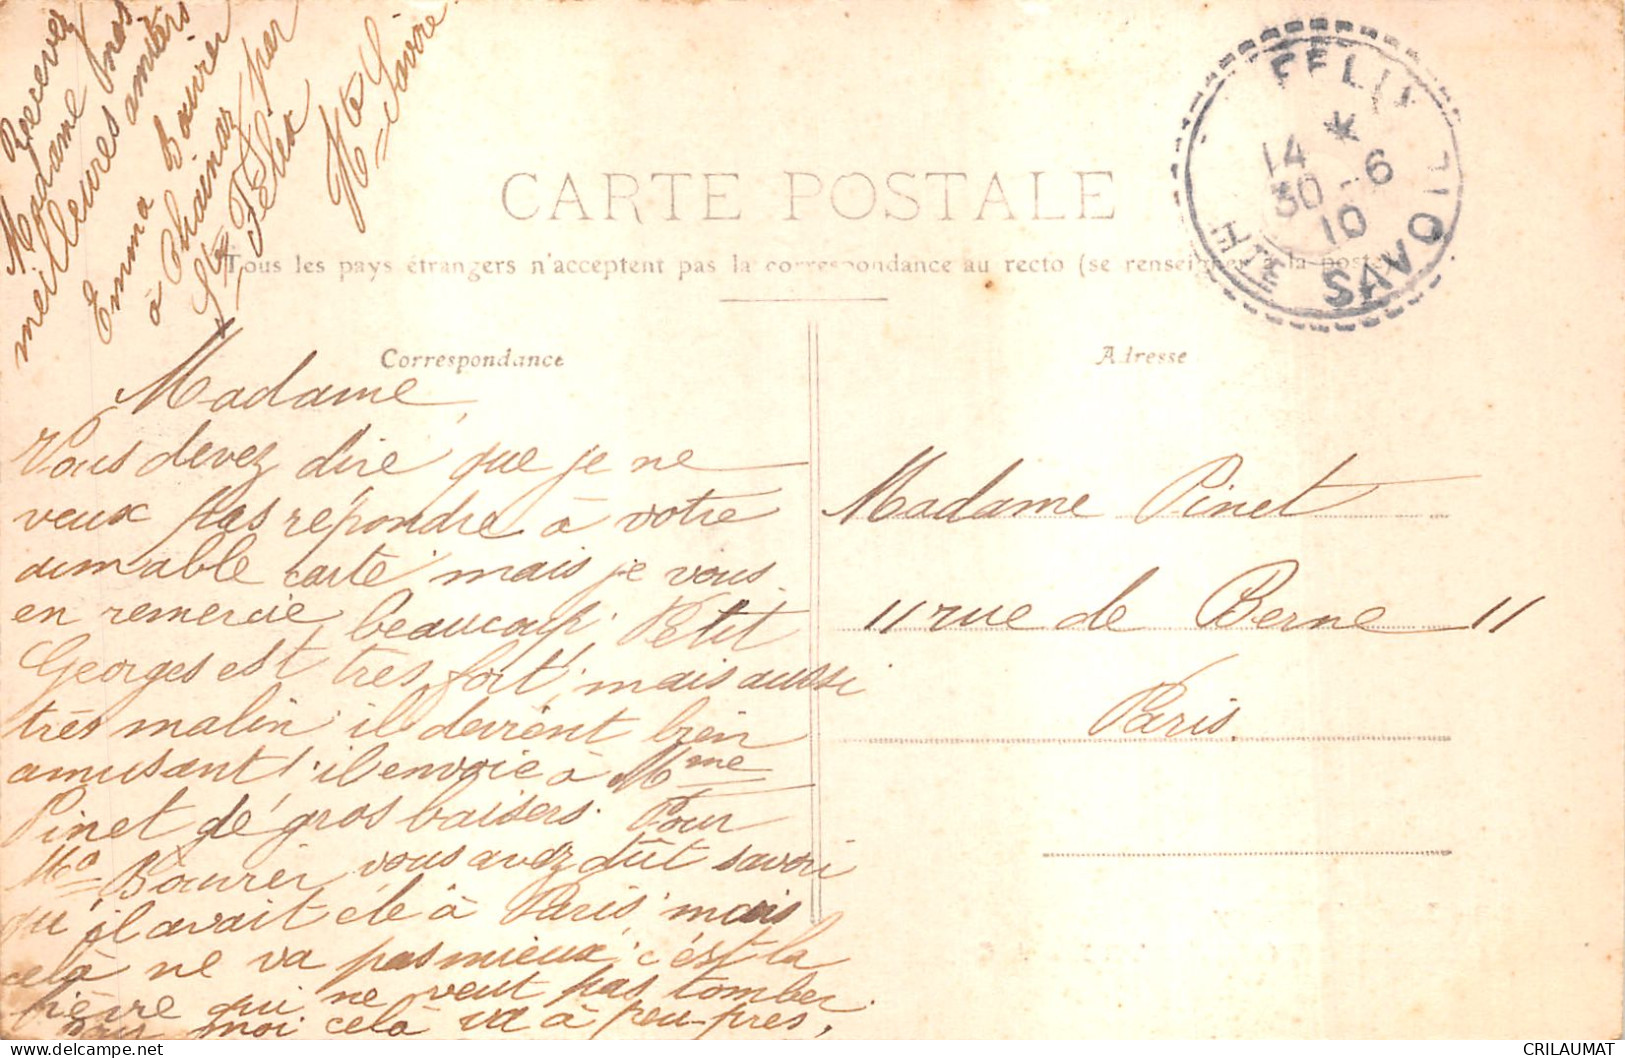 Recevez
Madame mes
meilleures amitiés
Emma Bouvier
à Chainaz par
St Félix
Hte Savoie
FELIX
14 *
30 - 6
10
HTE SAVOIE
CARTE POSTALE
Tous les pays étrangers n'acceptent pas la correspondance au recto (se renseigner à la poste)
Correspondance
Adresse
Madame
Vous devez dire que je ne
veux pas répondre à votre
aimable carte mais je vous
en remercie beaucoup. Petit
Georges est très fort, mais aussi
très malin il devient bien
amusant! il envoie à Mme
Pinet de gros baisers. Pour
Mr Bouvier vous avez dût savoir
qu'il avait été à Paris mais
celà ne va pas mieux, c'est la
fièvre qui ne veut pas tomber.
Pour moi celà va à peu près,
Madame Pinet
11 rue de Berne 11
Paris.
CRILAUMAT